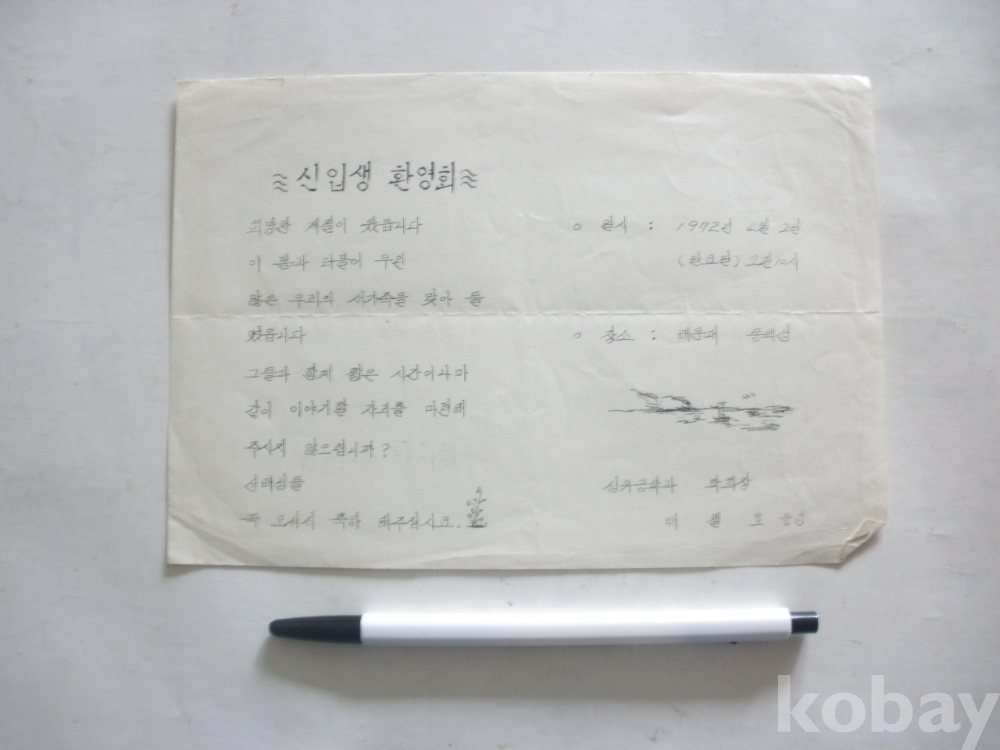 신입생 환영회
희망찬 계절이 왔읍니다
이 봄과 더불어 우린
많은 우리의 새가족을 맞아 들
였읍니다
그들과 함께 짧은 시간이나마
같이 이야기할 자리를 마련해
주시지 않으렵니까?
선배님들
꼭 오셔서 축하 해주십시요.
○ 일시 : 1972년 4월 2일
(일요일) 오전 10시
○ 장소 : 해운대 동백섬
섬유공학과 과회장
kobay